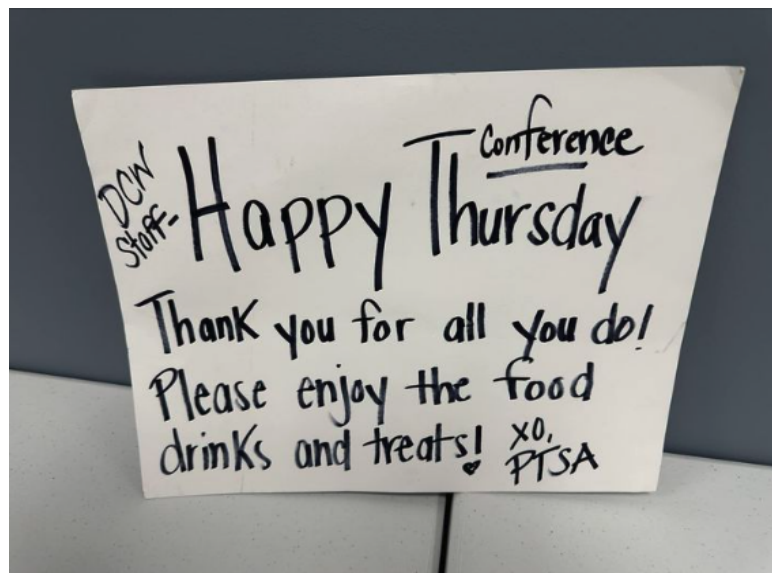 DCW
Staff-
Conference
Happy Thursday
Thank you for all you do!
Please enjoy the food
drinks and treats!
xo,
PTSA